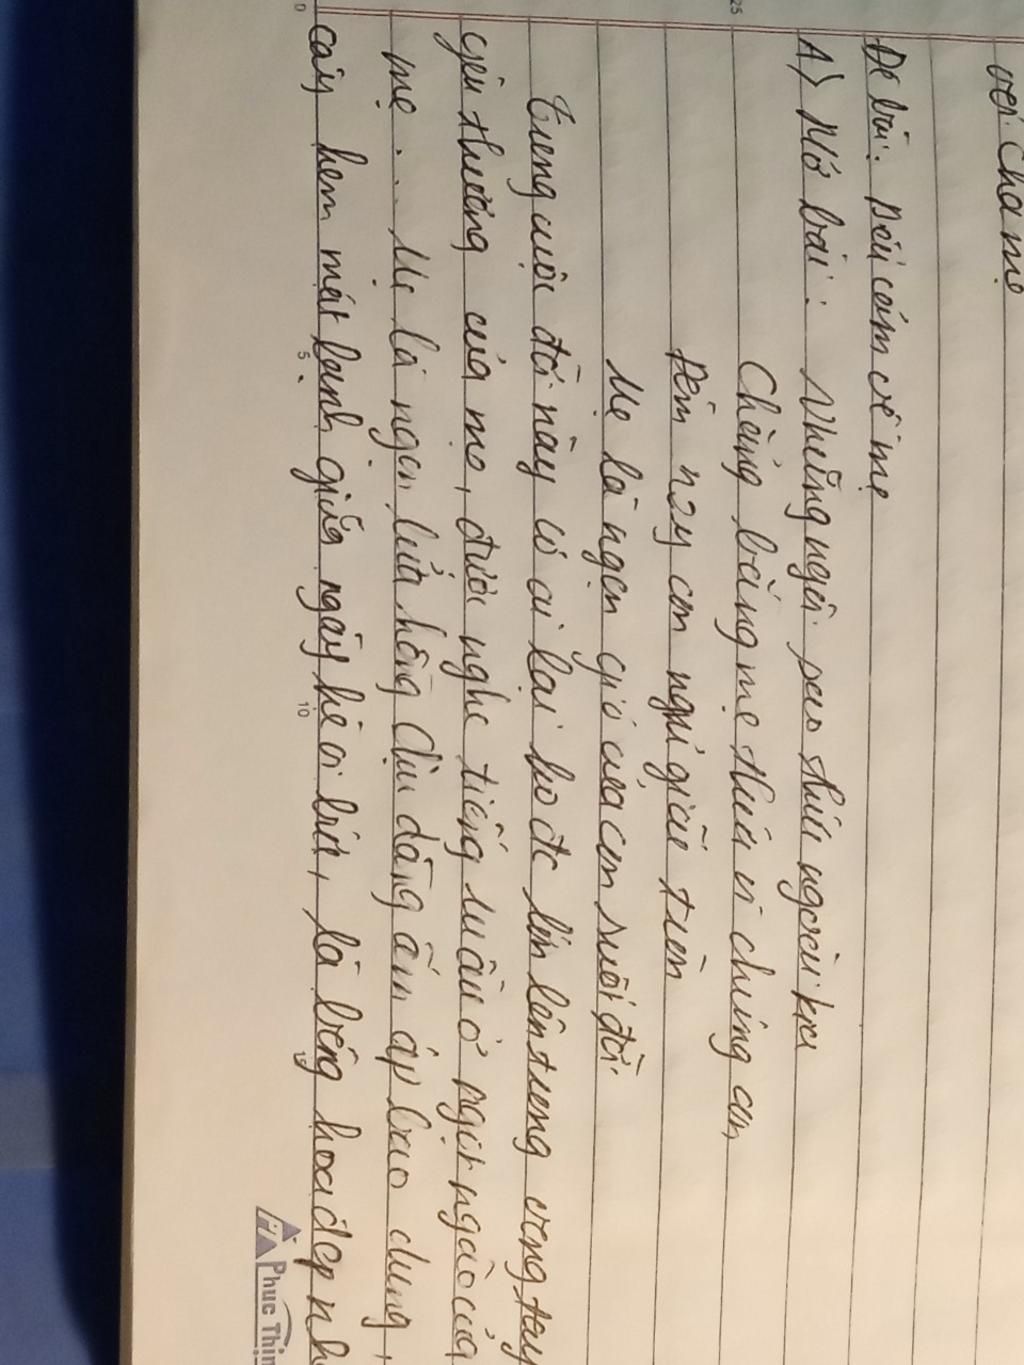 với cha mẹ
Đề bài: Biểu cảm về mẹ
A) Mở bài: Những ngôi sao thức ngoài kia
Chẳng bằng mẹ thức vì chúng con
Đêm nay con ngủ giấc tròn
Mẹ là ngọn gió của con suốt đời
Trong cuộc đời này có ai lại ko đc lớn lên trong vòng tay
yêu thương của mẹ, được nghe tiếng ru ầu ơ ngọt ngào của
mẹ... Mẹ là ngọn lửa hồng dịu dàng ấm áp bao dung,
cây kem mát lạnh giữa ngày hè oi bức, là bông hoa đẹp nh
25
0
5
10
15
Phuc Thin